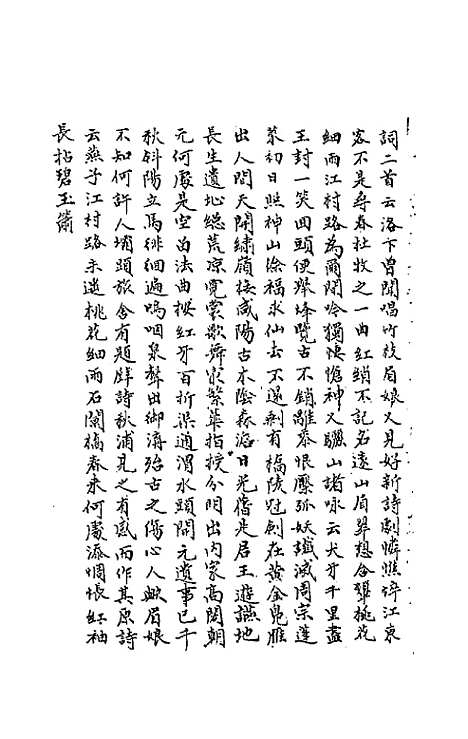 詞二首云洛下曾聞唱竹枝眉娘又見好新詩劇憐憔悴江東
客不是尋春杜牧之一曲紅綃不記名遠山眉翠想含顰桃花
細雨江村路為爾閒吟獨愴神又驪山諸咏云犬牙千里盡
王封一笑回頭便舉烽覽古不銷離黍恨檿弧妖讖滅周宗蓬
萊初日照神山徐福求仙去不還剩有橋陵冠劍在黃金鳧雁
出人間天開繡嶺接咸陽古木陰森浴日光舊是君王遊讌地
長生遺地總荒涼霓裳歌舞家繁華指授分明出內家高閣朝
元何處是空留法曲按紅牙百折渠通渭水頭開元遺事已千
秋斜陽立馬徘徊遍嗚咽泉聲出御溝殆古之傷心人歟眉娘
不知何許人壩頭旅舍有題壁詩秋浦見之有感而作其原詩
云燕子江村路未遙桃花細雨石闌橋春來何處添惆悵紅袖
長拈碧玉簫